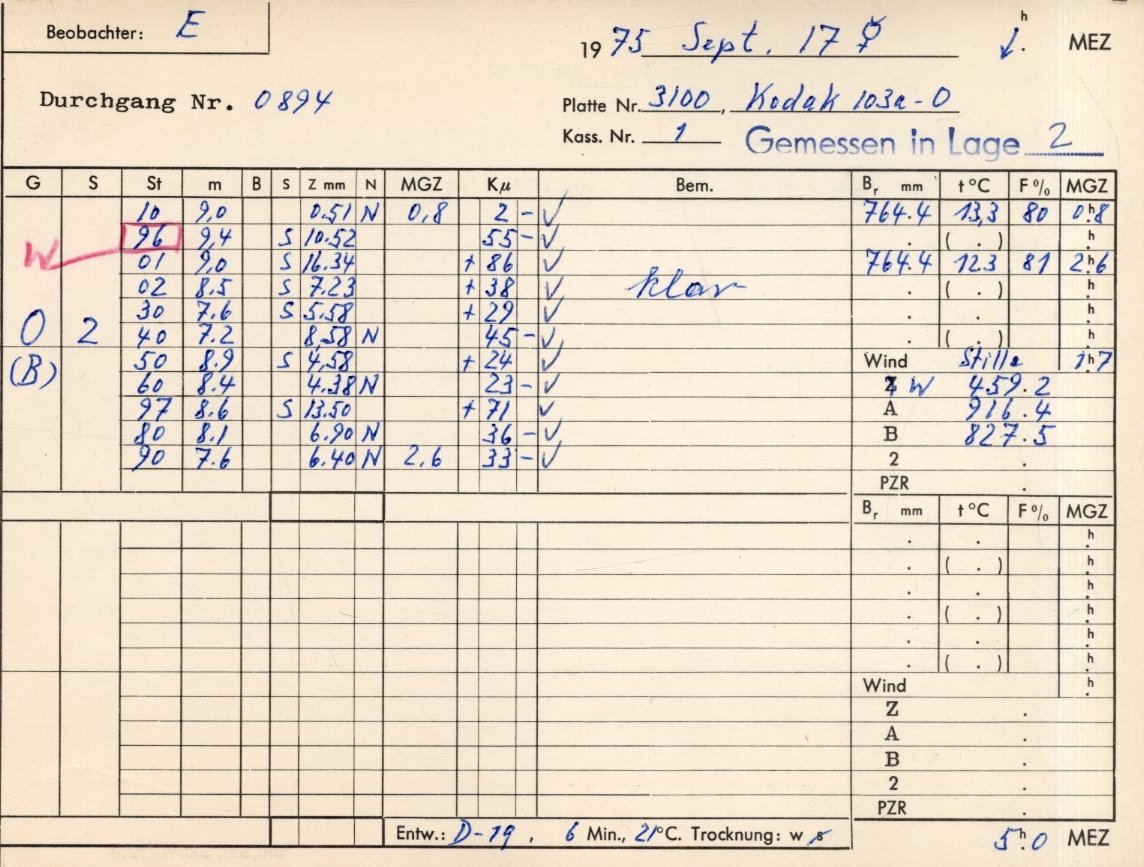 Beobachter: E
1975 Sept. 17 ☿ h . MEZ
Durchgang Nr. 0894
Platte Nr. 3100, Kodak 103a-O
Kass. Nr. 1 Gemessen in Lage 2
G S St m B S Z mm N MGZ Kµ Bem. Br mm t °C F % MGZ
10 9,0 0.51 N 0,8 2 - ✓ 764.4 13,3 80 0.h8
W 96 9,4 S 10.52 55 - ✓ . ( . ) .h
01 9,0 S 16.34 + 86 ✓ 764.4 12.3 81 2.h6
02 8.5 S 7.23 + 38 ✓ klar . ( . ) .h
30 7.6 S 5.58 + 29 ✓ . . .h
O 2 40 7.2 8,58 N 45 - ✓ . ( . ) .h
(B) 50 8.9 S 4,58 + 24 ✓ Wind Stille 1.h7
60 8.4 4.38 N 23 - ✓ W 459.2
97 8.6 S 13.50 + 71 ✓ A 916.4
80 8.1 6.90 N 36 - ✓ B 827.5
90 7.6 6.40 N 2,6 33 - ✓ 2 .
PZR .
Br mm t °C F % MGZ
. . .h
. ( . ) .h
. . .h
. ( . ) .h
. . .h
. ( . ) .h
Wind .h
Z .
A .
B .
2 .
PZR .
Entw.: D-19, 6 Min., 21°C. Trocknung: w s 5.h0 MEZ